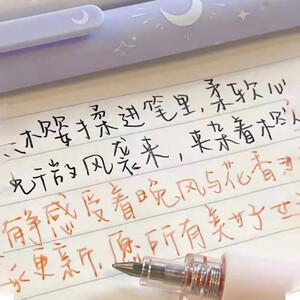 揉进笔里,柔软心
微风袭来,夹杂着
静感受着晚风与花香
永更新,愿所有美好